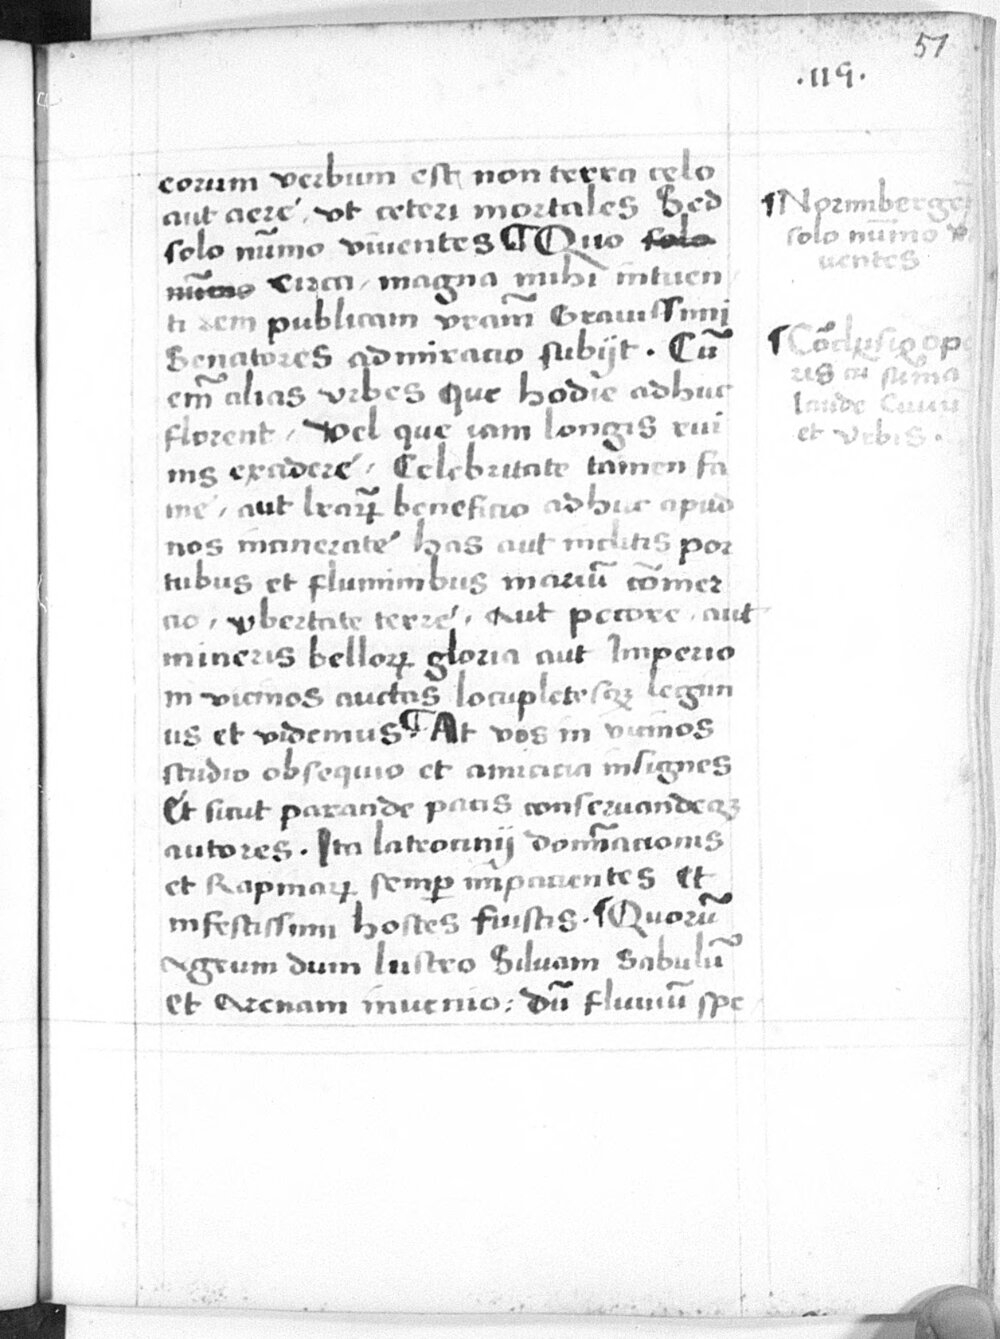 57
.119.
eorum verbum est non terra celo
aut aere, vt ceteri mortales Sed
solo nūmo viuentes ¶ Quo solo
circa, magna mihi intuen
ti rem publicam vram̄ Grauissimi
Senatores admiracio subijt. Cū
em̄ alias vrbes que hodie adhuc
florent, Vel que iam longis rui
nis exadere, Celebritate tamen fa
me, aut lrarꝝ beneficio adhuc apud
nos manerate has aut inclitis por
tubus et fluminibus mariū cōmer
cio, vbertate terre, Aut pecore, aut
mineris bellorꝝ gloria aut Imperio
in vicinos auctas locupletesqꝫ legim
us et videmus. ¶ At vos in vicinos
studio obsequio et amicicia insignes
Et sicut parande pacis conseruandeqꝫ
autores. Ita latrocinij domīacionis
et Rapinarꝝ semꝑ impacientes Et
infestissimi hostes fuistis. ¶ Quorū
Agrum dum lustro Siluam Sabulū
et Arenam inuenio: Dū fluuiū spe
¶ Normberge
solo nūmo vi
uentes
¶ Cōclusio ope
ris cū sum̄a
laude Ciuiū
et Vrbis.